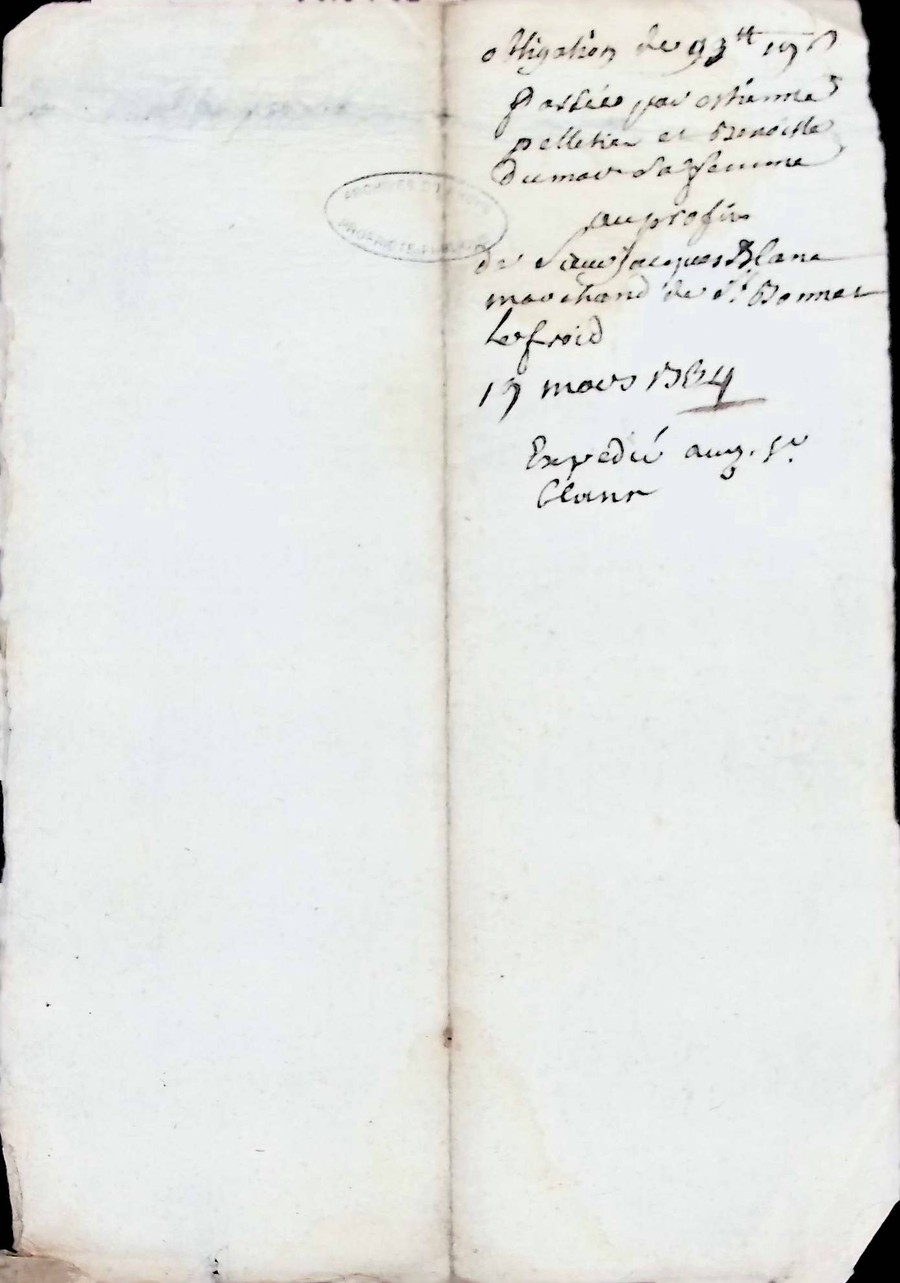 obligation de 93ᵗᵗ 19 s
passée par estienne
pelletier et Benoitte
Dumas sa femme
au profit
de Jacques Blanc
marchand de Sᵗ Bonnet
le froid
19 mars
Expedié aud. Sʳ
Blanc
ARCHIVES
PROPRIETE